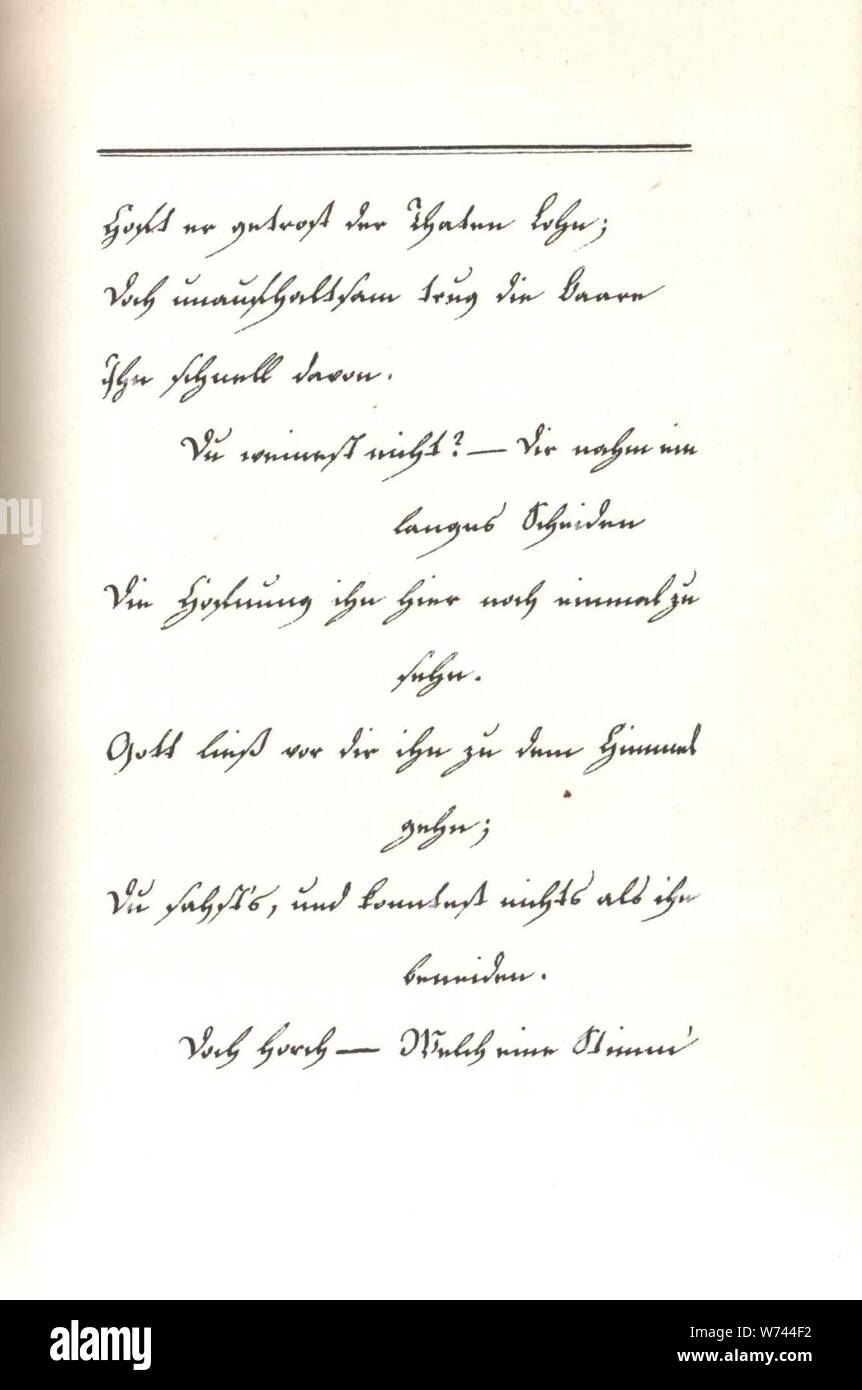 Hofft er getrost der Thaten Lohn;
Doch unaufhaltsam trug die Baare
Ihn schnell davon.
Du weinest nicht? — Dir nahm ein
langes Scheiden
Die Hoffnung ihn hier noch einmal zu
sehn.
Gott ließ vor dir ihn zu dem Himmel
gehn;
Du sahst's, und konntest nichts als ihn
beneiden.
Doch horch — Welch eine Stimm'
my
alamy
Image ID: W744F2
www.alamy.com